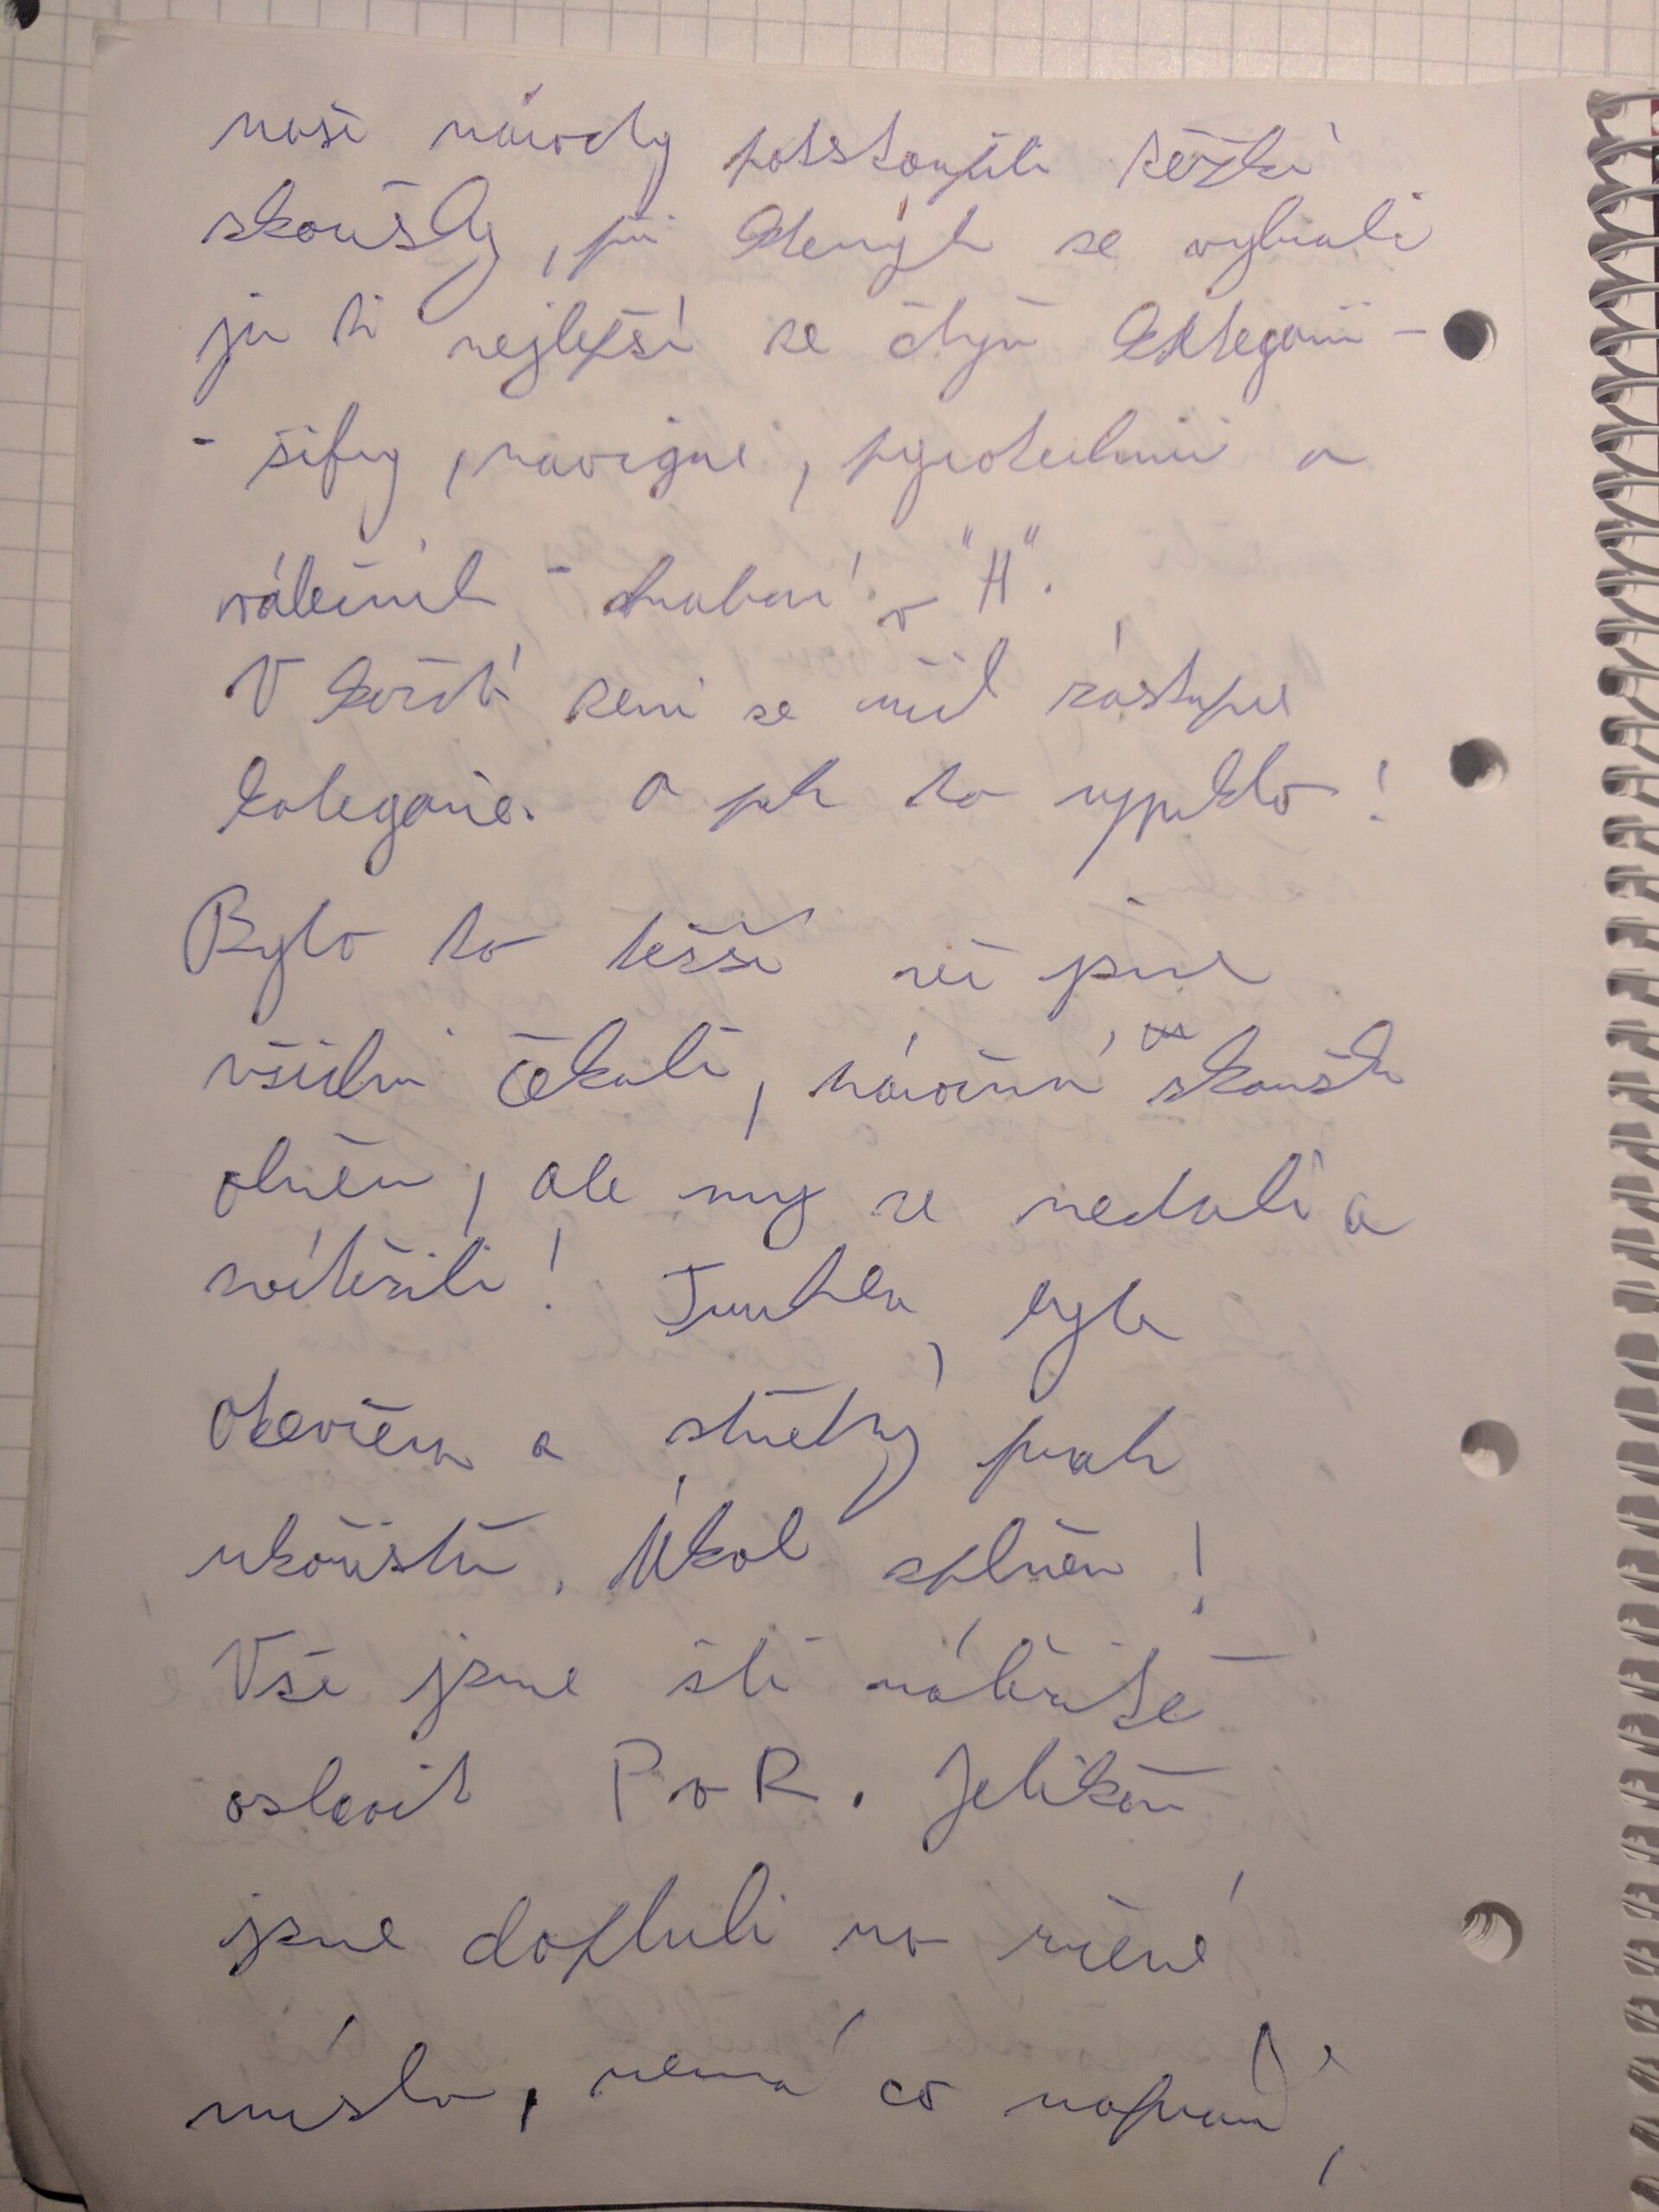 naše národy podstoupili těžké
zkoušky, při kterých se vybrali
jen ti nejlepší ze čtyř kategorií -
- šifry, navigace, pyrotechnici a
válečník - chabaní v "H".
V každé zemi se našel zástupce
kategorie. A pak to vypuklo!
Bylo to těžší než jsme
všichni čekali, náročná zkouška
ohněm, ale my se nedali a
zvítězili! Truhla byla
otevřena a střelný prach
ukořistěn. Úkol splněn!
Vše jsme šli náležitě
oslavit P v R. Jelikož
jsme dopluli na různé
místa, nemá co napravit,